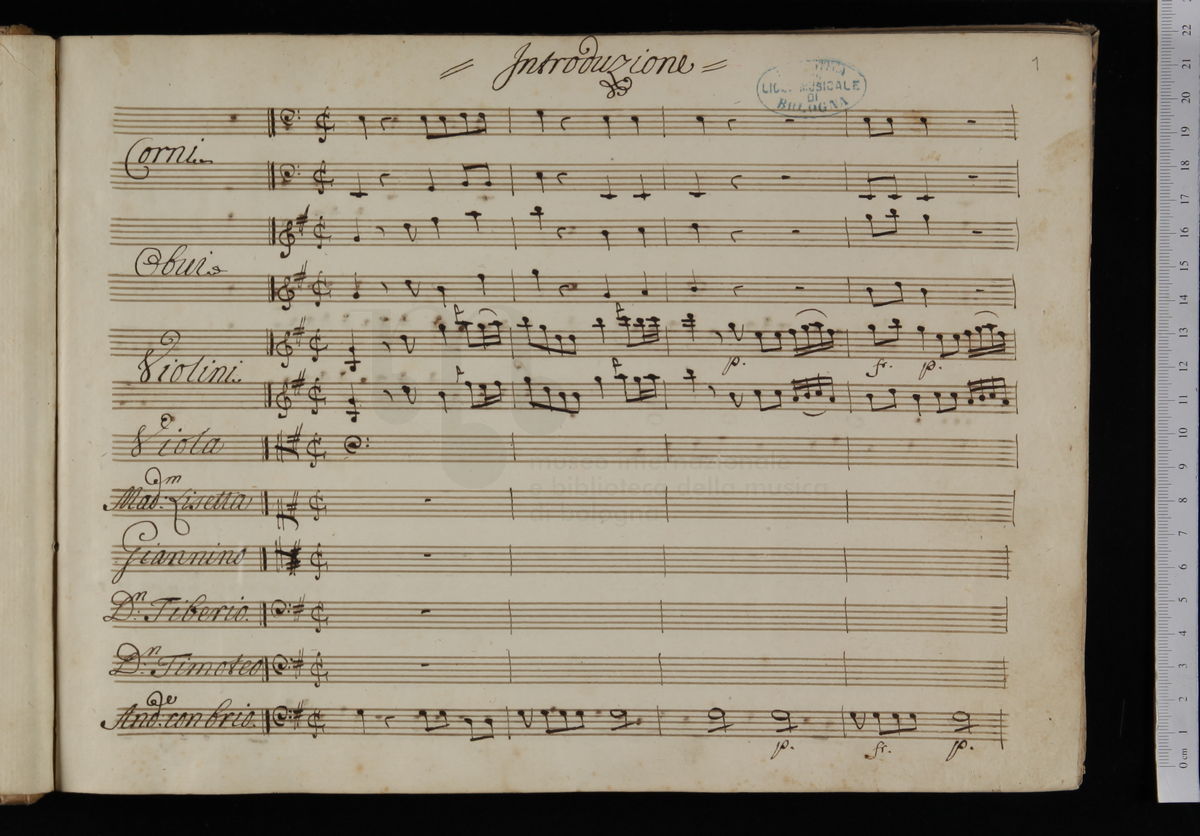 = Introduzione =
1
LICEO MUSICALE
DI
BOLOGNA
Corni
Obui
p. fr. p.
Violini
Viola
museo internazionale
e biblioteca della musica
di bologna
Mad.m Lisetta
Giannino
D.n Tiberio.
D.n Timoteo
And.e con brio
p. fr. p.
0 cm 1 2 3 4 5 6 7 8 9 10 11 12 13 14 15 16 17 18 19 20 21 22